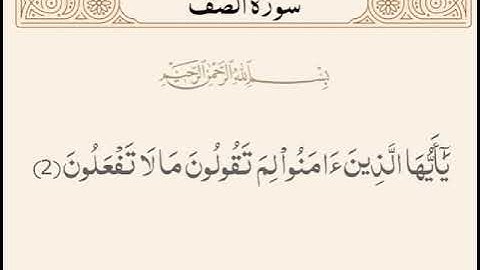 سورة الصف
بِسْمِ اللَّهِ الرَّحْمَٰنِ الرَّحِيمِ
يَٰٓأَيُّهَا الَّذِينَ ءَامَنُوا۟ لِمَ تَقُولُونَ مَا لَا تَفْعَلُونَ (2)